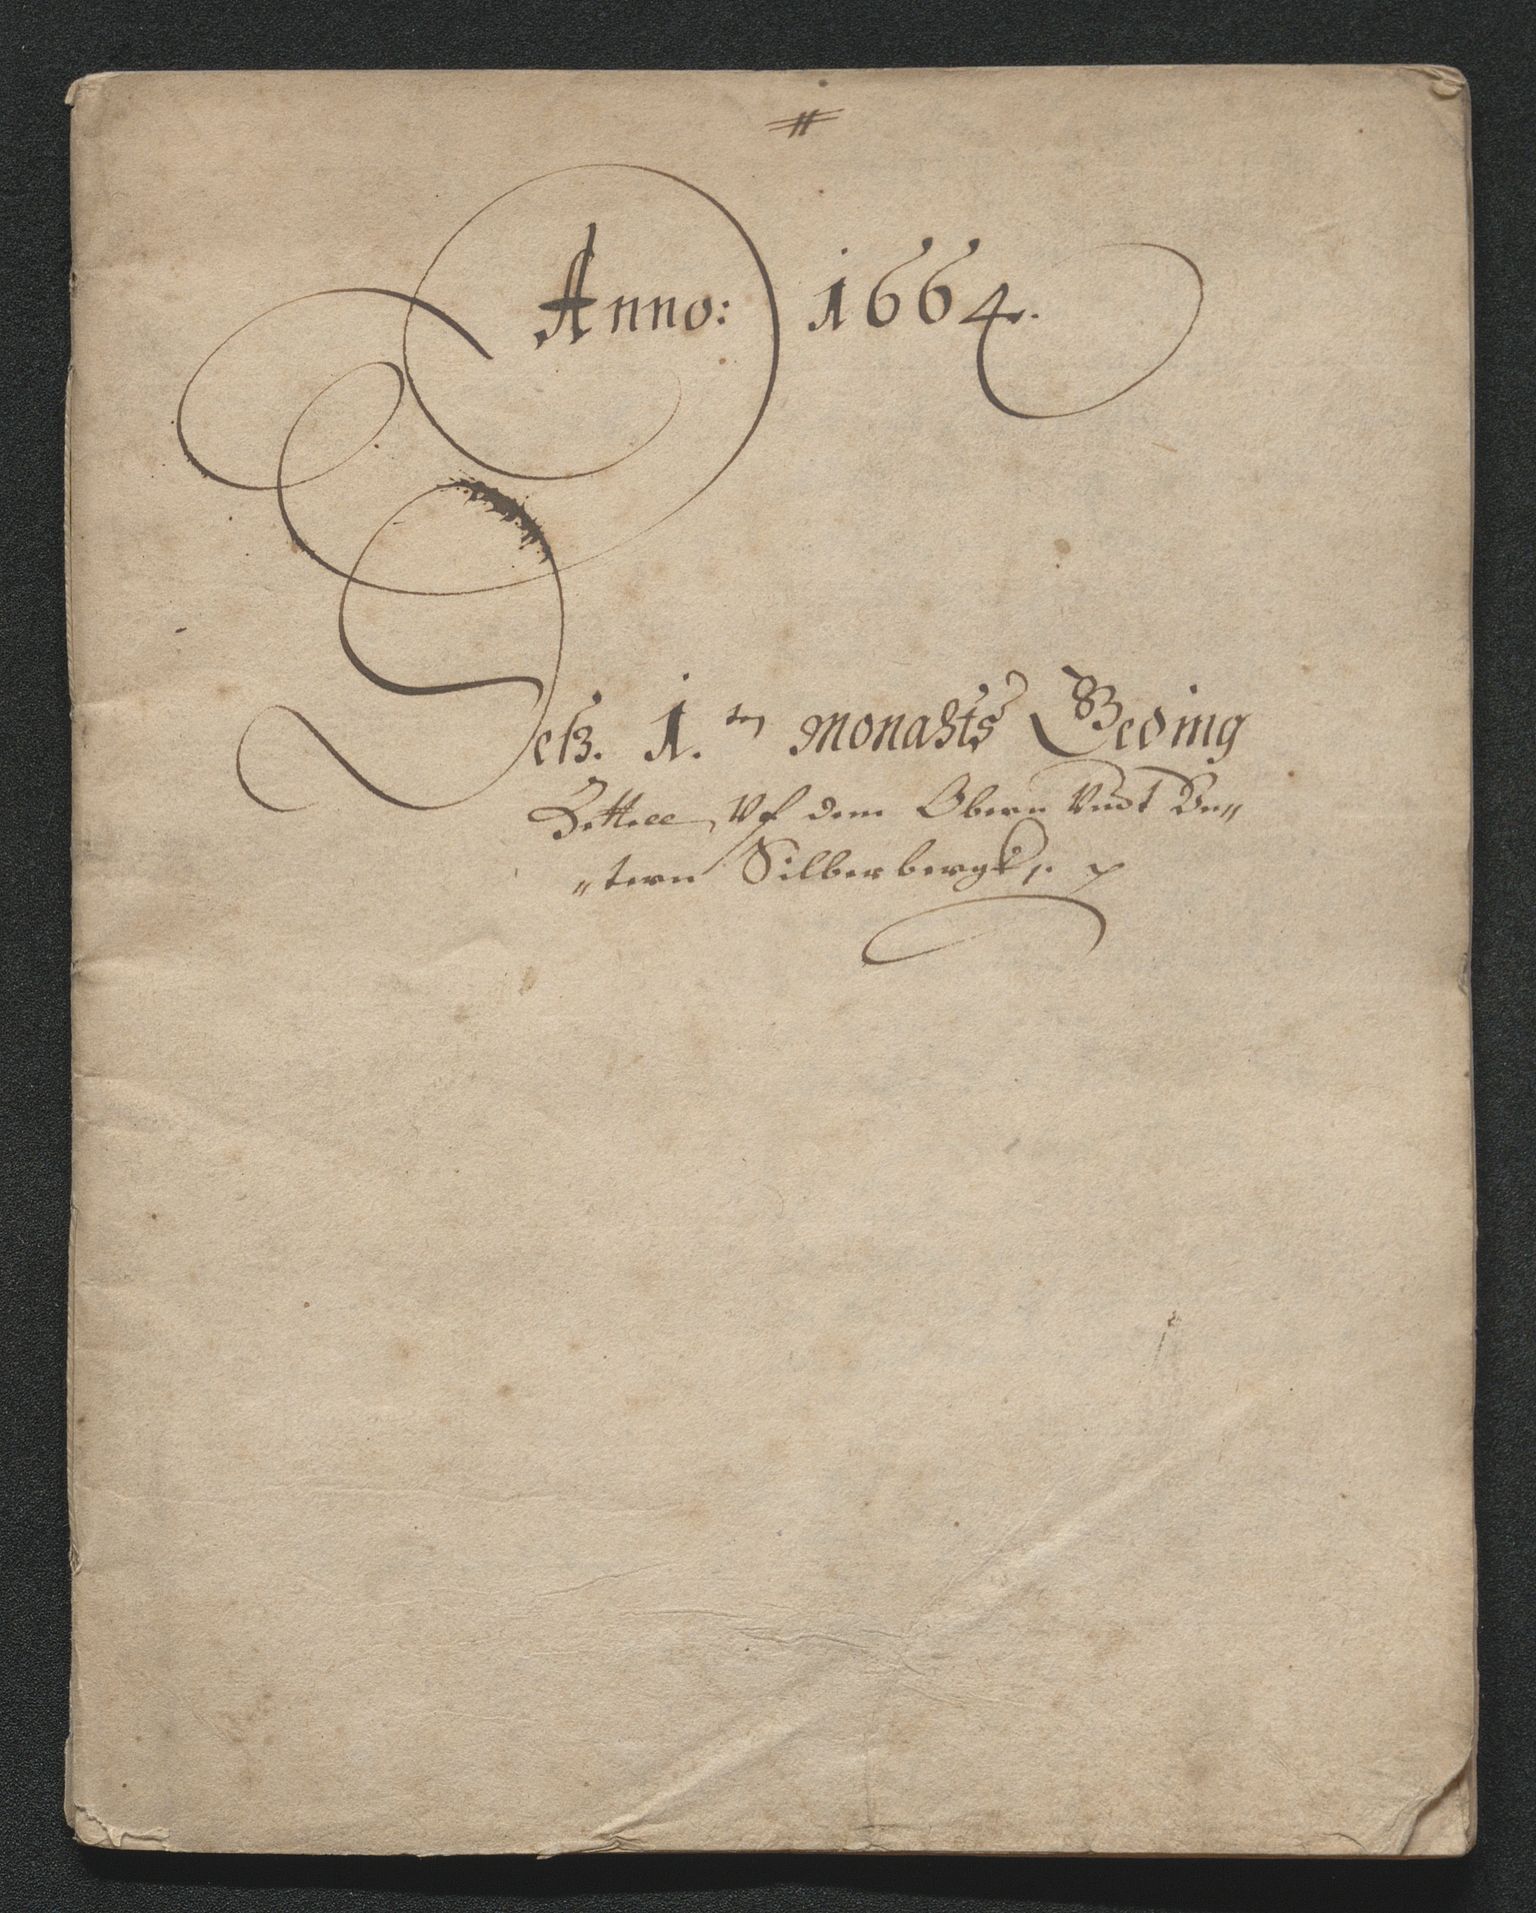 #
Anno: 1664.
Deß. 1.ten Monahts Geding
Zettell, Vf dem Obern Vndt Vn„
„tern Silberbergk, p